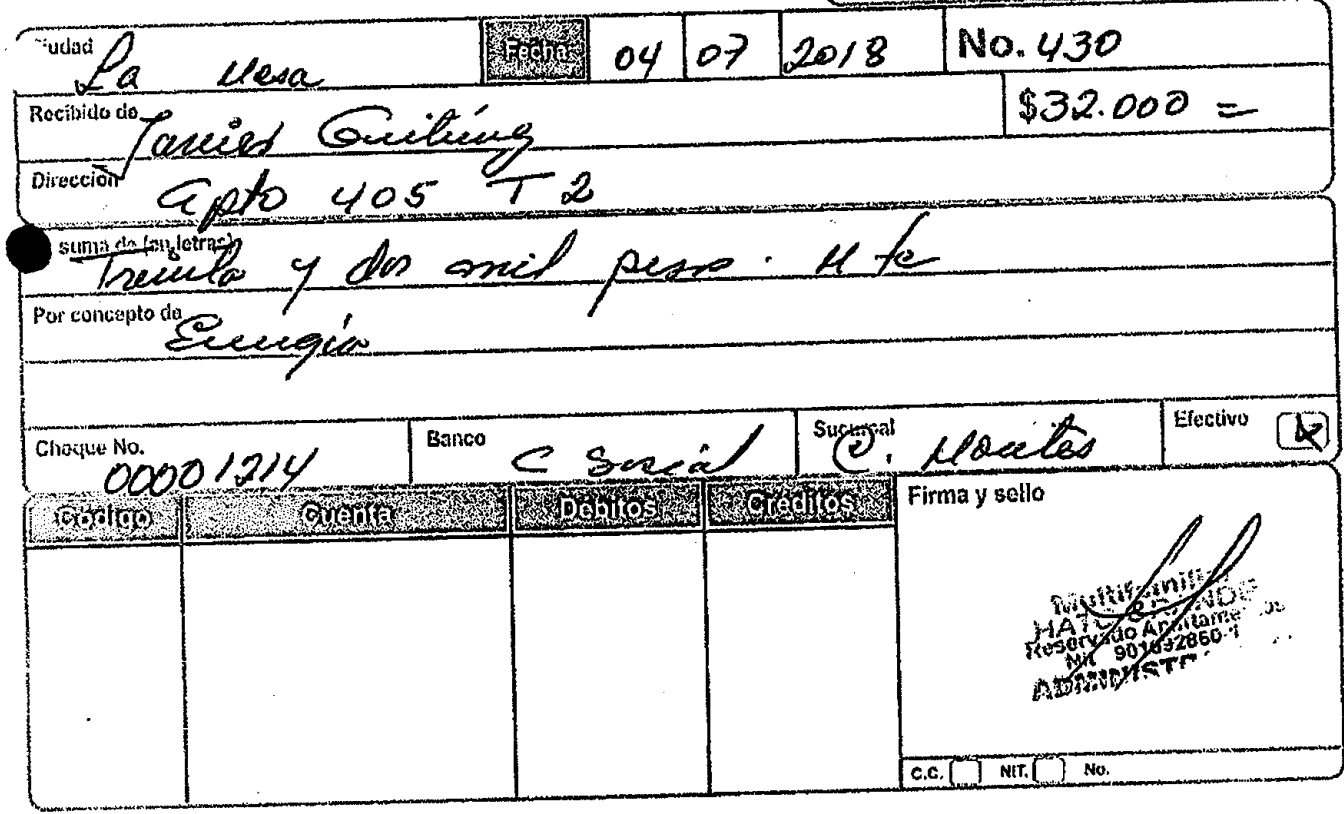 Ciudad La Mesa Fecha 04 07 2018 No. 430
Recibido de Javier $32.000 =
Dirección Apto 405 T 2
suma de (en letras) Treinta y dos mil pesos M/te
Por concepto de Energía
Cheque No. 00001214 Banco C Social Sucursal C. Montes Efectivo
Código Cuenta Débitos Créditos Firma y sello
Multifamiliar
HATO GRANDE
Reservado Apartamentos
Nit 901032860-1
C.C. NIT. No.